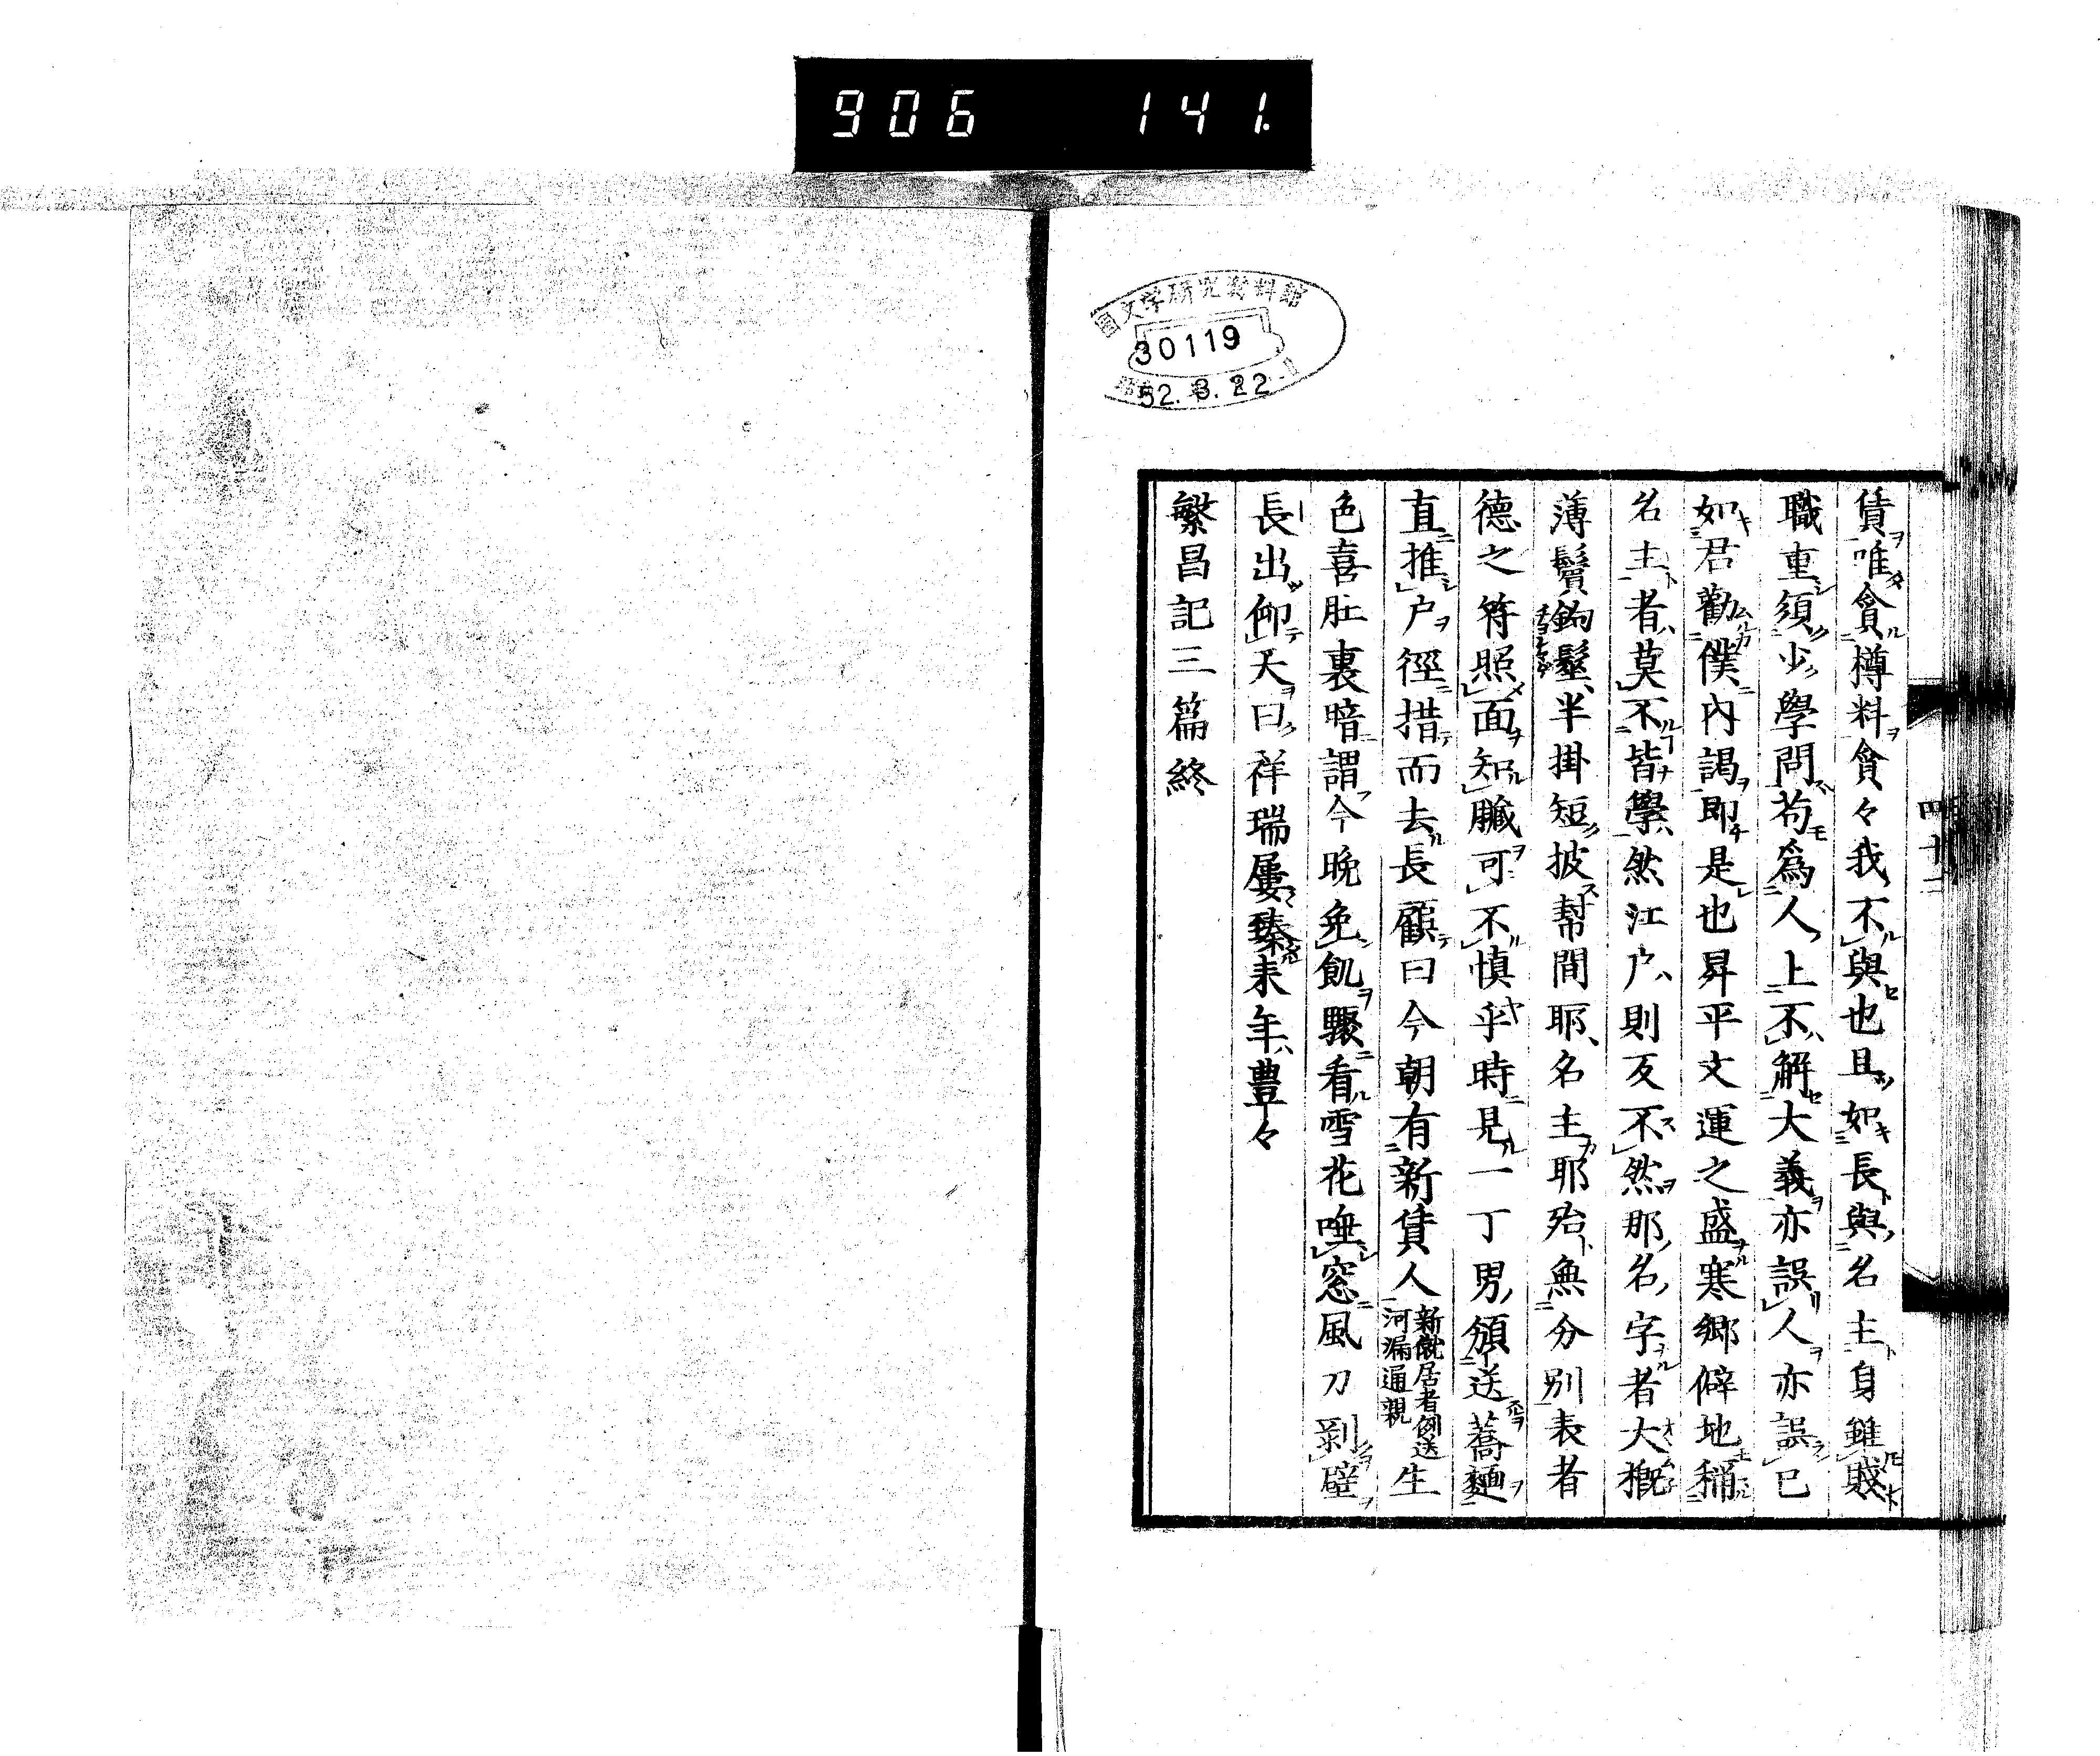 906 141
國文学研究資料館
30119
52.3.22
賃唯貪樽料貪々我不與也且如長與名主身雖賤
職重須少學問苟爲人上不解大義亦誤人亦誤已
如君勸僕内謁即是也昇平文運之盛寒郷僻地稱
名主者莫不皆學然江戸則反不然那名字者大概
薄鬢鉤髷半掛短披幇間耶名主耶殆魚分別表者
德之符照面知臟可不慎乎時見一丁男頒送蕎麺
直推戸徑措而去長顧曰今朝有新賃人新僦居者例送河漏通親生
色喜肚裏暗謂今晩免飢驟看雪花唾窓風刀剥壁
長出仰天曰祥瑞屢臻来年豊々
繁昌記三篇終